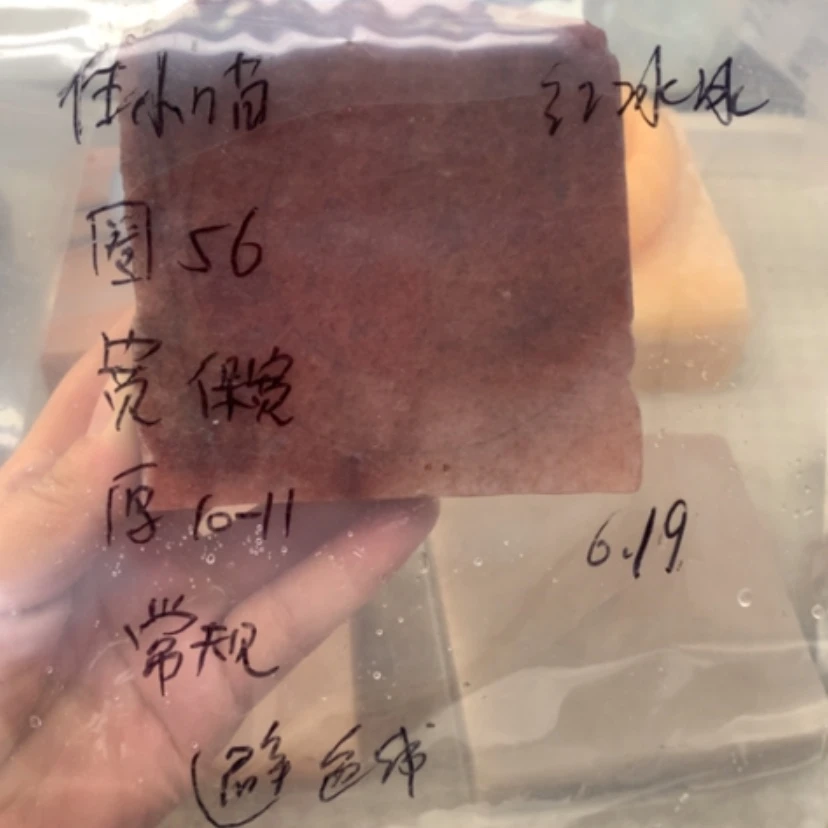 佳小喵 红冰冰
圈 56
宽 保宽
厚 10-11
常规
6.19
避色